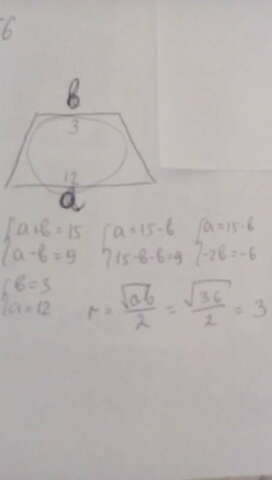 6
b
3
12
a
{a+b=15 {a=15-b {a=15-b
{a-b=9 {15-b-b=9 {-2b=-6
{b=3
{a=12 r = √ab/2 = √36/2 = 3